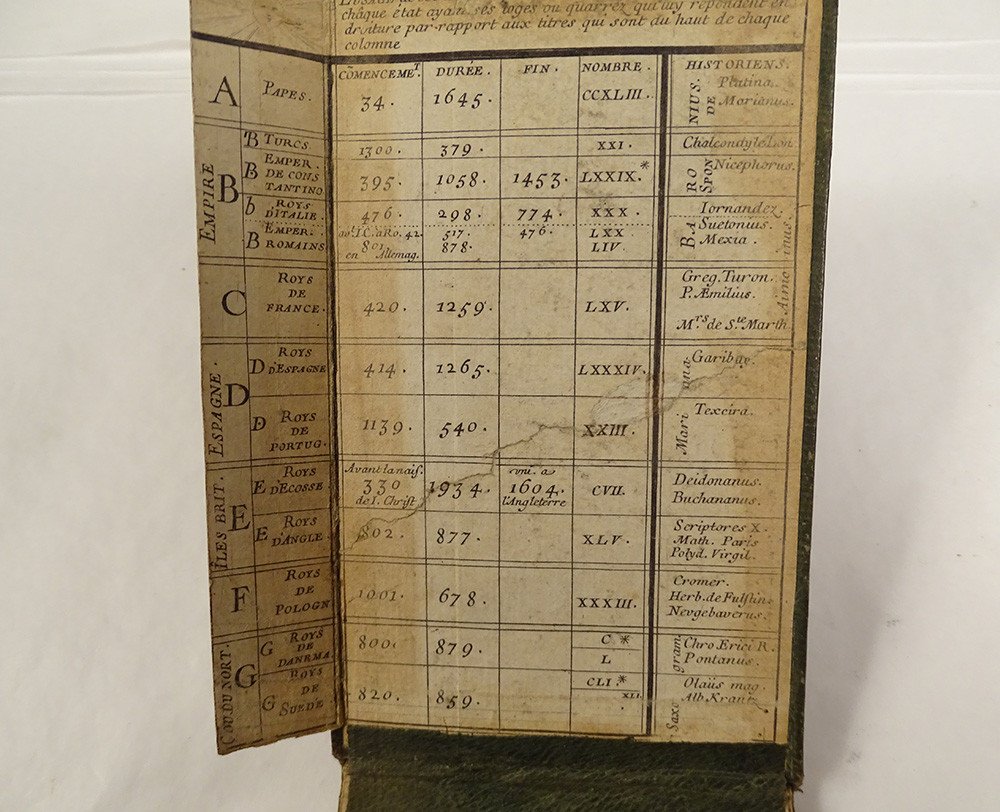 chàque état ayant ses loges ou quarrez qui luy repondent en
droiture par-rapport aux titres qui sont du haut de chaque
colomne
CÕMENCEMEᵀ. DURÉE. FIN. NOMBRE. HISTORIENS.
A PAPES. 34. 1645. CCXLIII. Platina.
NIUS. DE Marianus.
EMPIRE
B
B TURCS 1300. 379. XXI. Chalcondyle
B EMPER. DE CONS TANTINO 395. 1058. 1453. LXXIX.* Nicephorus.
RO SPON
b ROYS D'ITALIE. 476. 298. 774. XXX. Iornandez.
B EMPER. ROMAINS avt. I.C. a Ro. 42. 517. 476. LXX Suetonius.
801. en Allemag. 878. LIV. Mexia.
BA
C ROYS DE FRANCE. 420. 1259. LXV. Greg. Turon.
P. Æmilius.
Mrs. de Ste Marth
ESPAGNE.
D
D ROYS D'ESPAGNE 414. 1265. LXXXIV. Garibay.
D ROYS DE PORTUG. 1139. 540. XXIII. Texeira.
Mari ana
ÎLES BRIT.
E
E ROYS D'ECOSSE Avant la nais. 330 de I. Christ 1934. uni. a 1604. l'Angleterre CVII. Deidonanus.
Buchananus.
E ROYS D'ANGLE 802. 877. XLV. Scriptores X.
Math. Paris
Polyd. Virgil.
F ROYS DE POLOGN 1001. 678. XXXIII. Cromer.
Herb. de Fulstin.
Neugebaverus.
COU. DU NORT.
G
G ROYS DE DANEMA 800. 879. C * Chro. Erici R.
L Pontanus.
G ROYS DE SUEDE 820. 859. CLI.* Olaüs mag.
XLI. Alb. Krantz
Saxo gram.